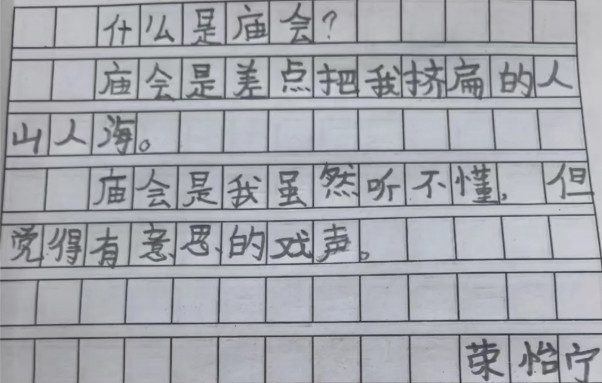 什么是庙会？
庙会是差点把我挤扁的人
山人海。
庙会是我虽然听不懂，但
觉得有意思的戏声。
荣怡宁